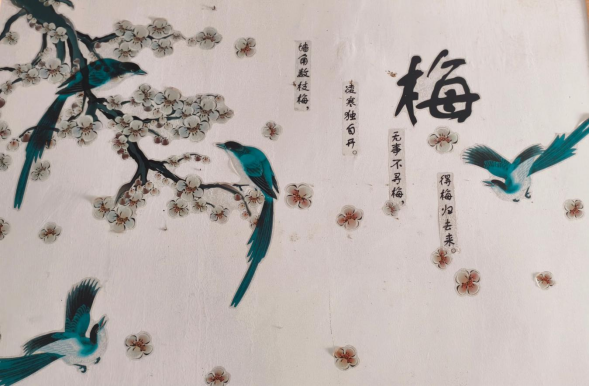 梅
墙角数枝梅，
凌寒独自开。
无事不寻梅，
得梅归去来。